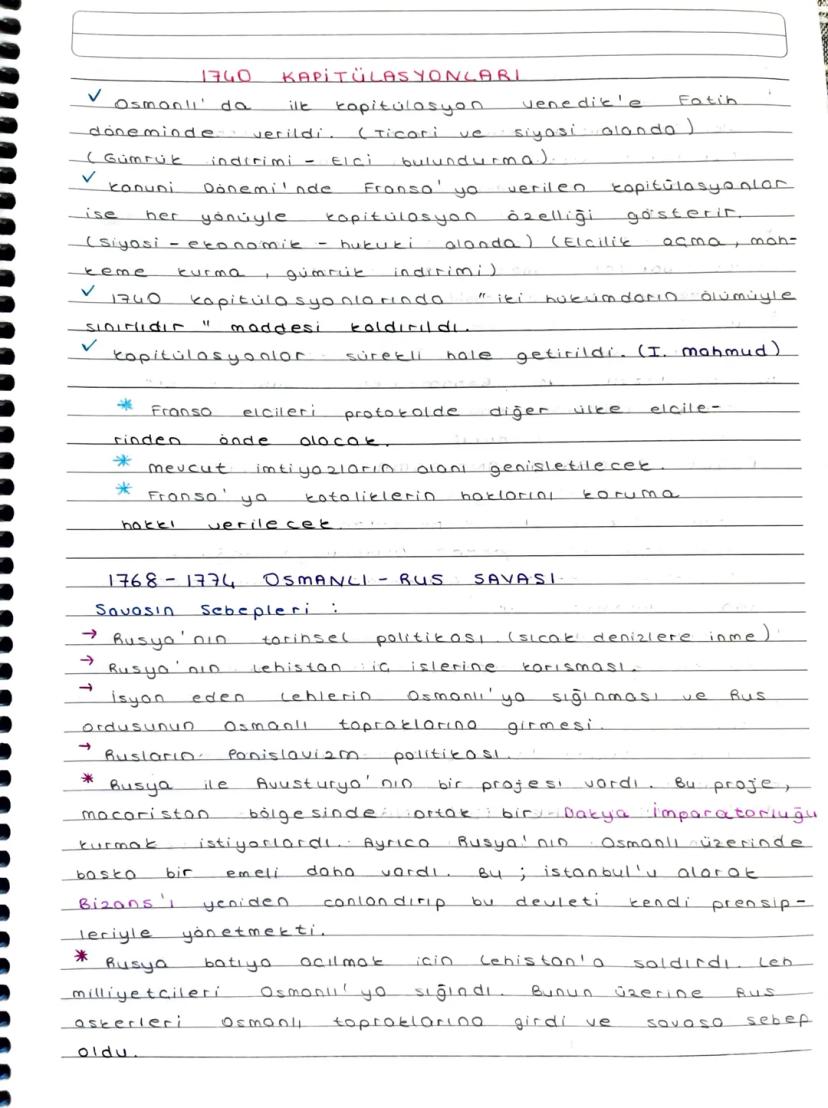 1740 KAPİTÜLASYONLARI
✓ Osmanlı'da ilk kapitülasyon Venedik'e Fatih
döneminde verildi. (Ticari ve siyasi alanda)
(Gümrük indirimi - Elçi bulundurma).
✓ Kanuni Dönemi'nde Fransa'ya verilen kapitülasyonlar
ise her yönüyle kapitülasyon özelliği gösterir.
(siyasi - ekonomik - hukuki alanda) (Elçilik açma, mah-
keme kurma, gümrük indirimi)
✓ 1740 kapitülasyonlarında "iki hükümdarın ölümüyle
sınırlıdır" maddesi kaldırıldı.
✓ Kapitülasyonlar sürekli hale getirildi. (I. Mahmud)
* Fransa elçileri protokolde diğer ülke elçile-
rinden önde olacak.
* Mevcut imtiyazların alanı genişletilecek.
* Fransa'ya Katoliklerin haklarını koruma
hakkı verilecek.
1768-1774 OSMANLI - RUS SAVAŞI
Savaşın Sebepleri :
→ Rusya'nın tarihsel politikası (sıcak denizlere inme)
→ Rusya'nın Lehistan iç işlerine karışması.
→ İsyan eden Lehlerin Osmanlı'ya sığınması ve Rus
ordusunun Osmanlı topraklarına girmesi.
→ Rusların Panislavizm politikası.
* Rusya ile Avusturya'nın bir projesi vardı. Bu proje,
Macaristan bölgesinde ortak bir Dakya İmparatorluğu
kurmak istiyorlardı. Ayrıca Rusya'nın Osmanlı üzerinde
başka bir emeli daha vardı. Bu ; İstanbul'u alarak
Bizans'ı yeniden canlandırıp bu devleti kendi prensip-
leriyle yönetmekti.
* Rusya batıya açılmak için Lehistan'a saldırdı. Leh
milliyetçileri Osmanlı'ya sığındı. Bunun üzerine Rus
askerleri Osmanlı topraklarına girdi ve savaşa sebep
oldu.